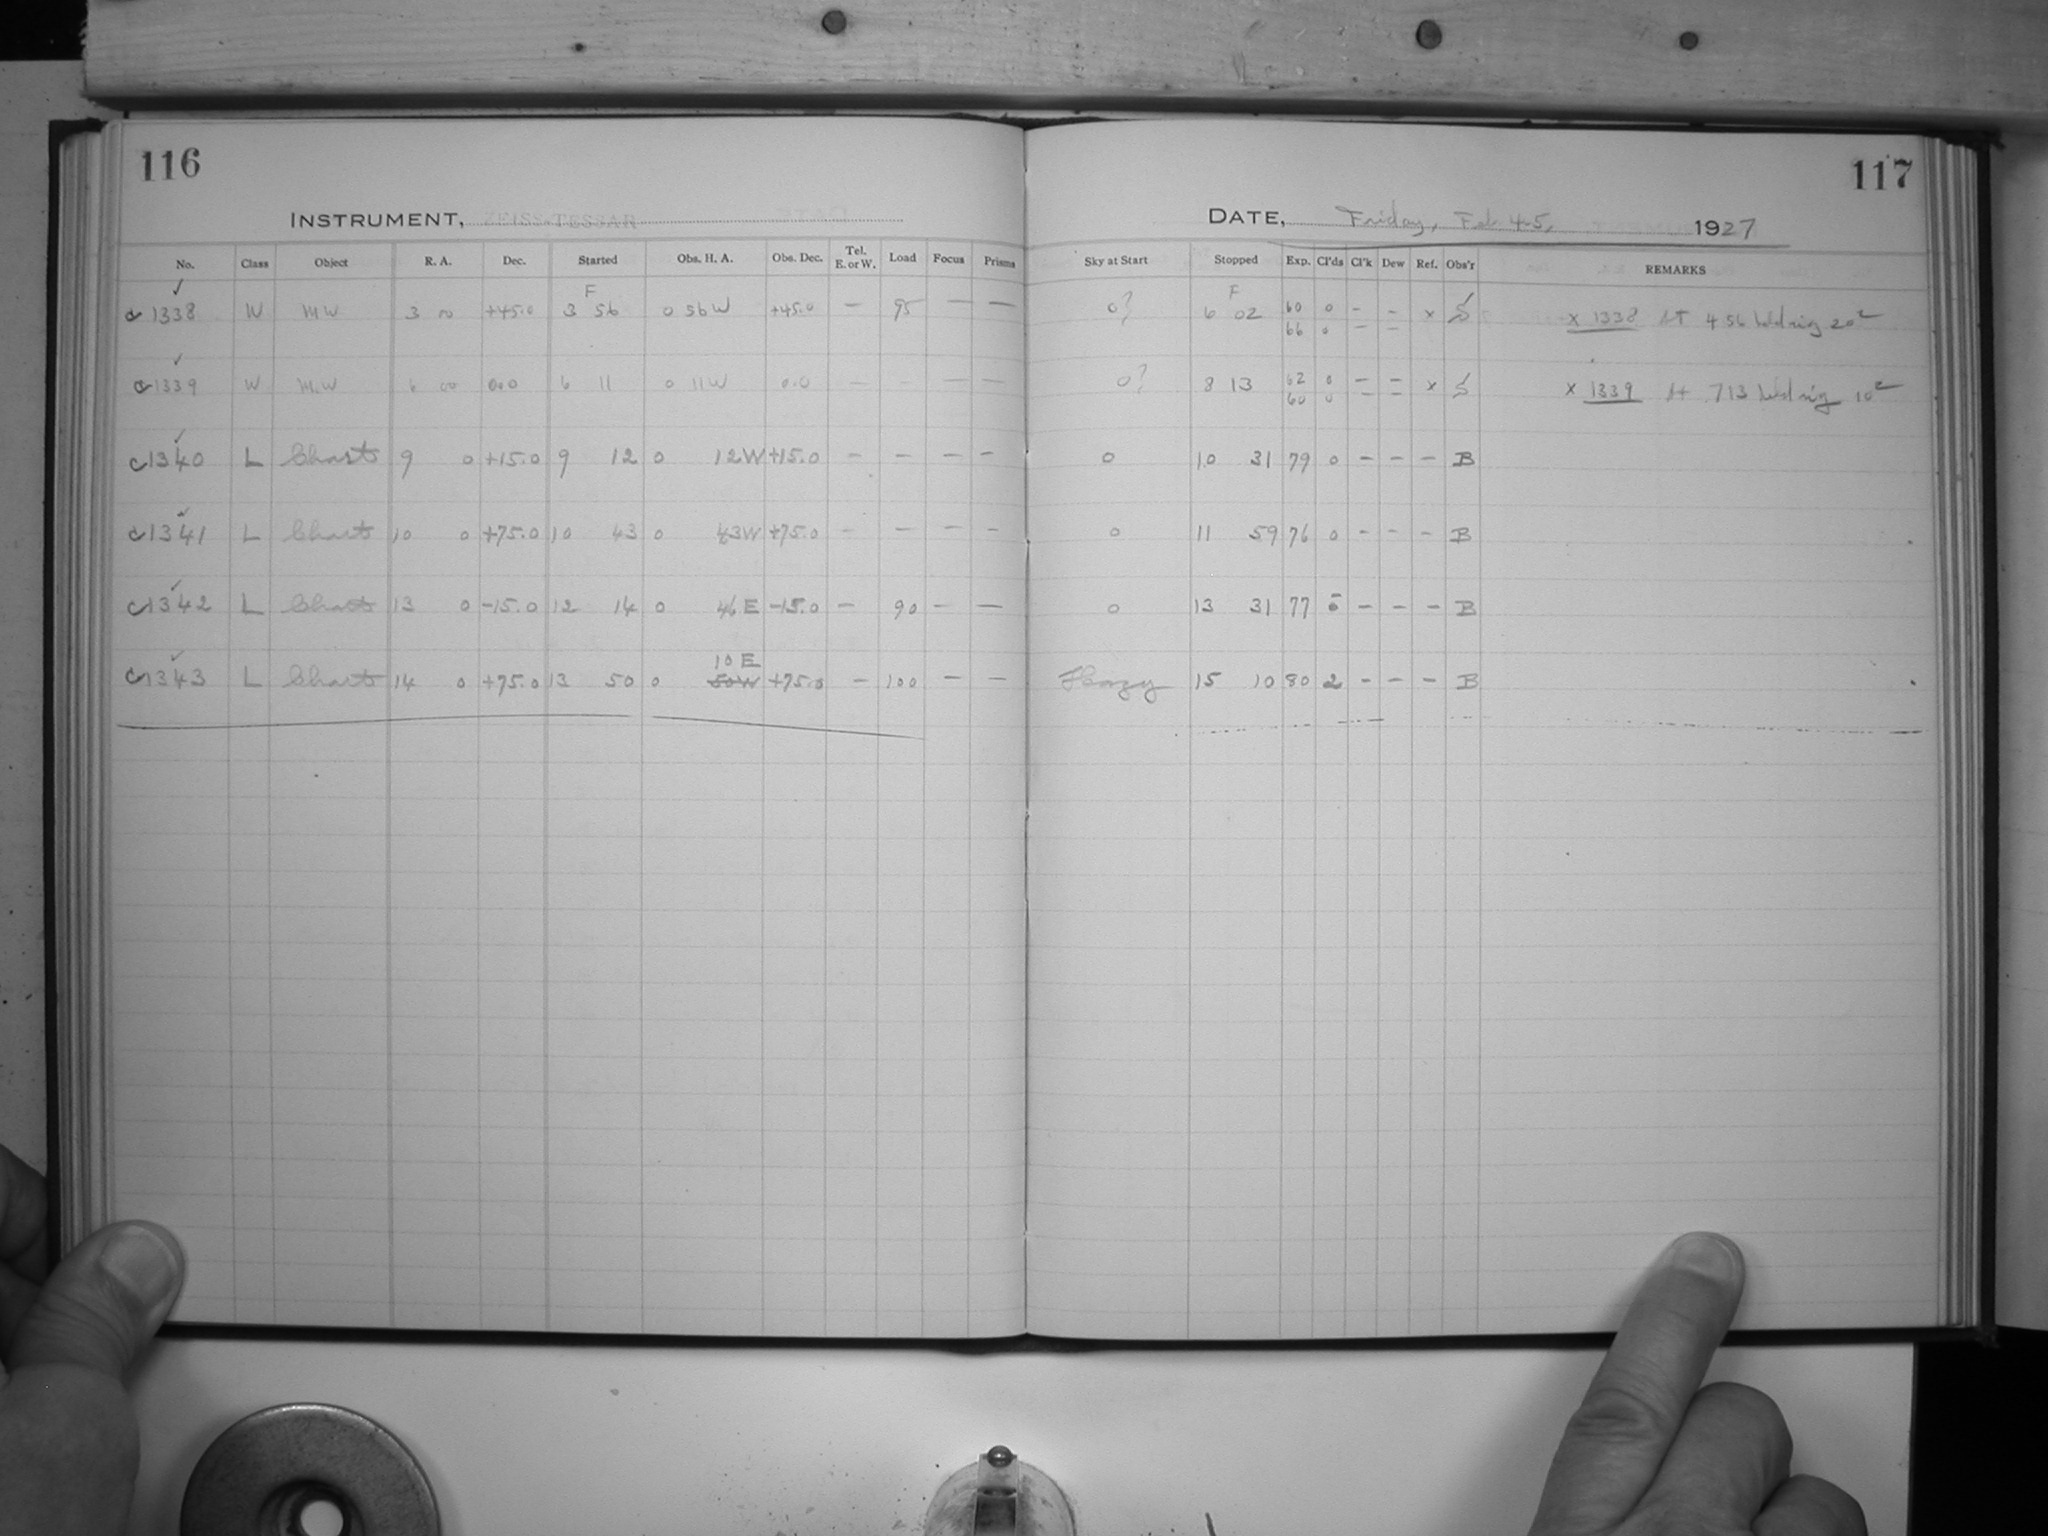 116
INSTRUMENT, ZEISS-TESSAR
No. Class Object R. A. Dec. Started Obs. H. A. Obs. Dec. Tel. E. or W. Load Focus Prisms
F
1338 W MW 3 00 +45.0 3 56 0 56W +45.0 — 95 — —
1339 W M.W 6 00 0.0 6 11 0 11W 0.0 — – — —
c1340 L Charts 9 0 +15.0 9 12 0 12W +15.0 – – – –
c1341 L Charts 10 0 +75.0 10 43 0 43W +75.0 – – – –
c1342 L Charts 13 0 -15.0 12 14 0 46 E -15.0 – 90 – —
10 E
c1343 L Charts 14 0 +75.0 13 50 0 50W +75.0 – 100 – –
117
DATE, Friday, Feb 4-5, 1927
Sky at Start Stopped Exp. Cl'ds Cl'k Dew Ref. Obs'r REMARKS
F
0? 6 02 60 0 – – x S x 1338 At 4 56 20
66 0 – –
0? 8 13 62 0 – – x S x 1339 At 713 10
60 0 – –
0 10 31 79 0 – – – B
0 11 59 76 0 – – – B
0 13 31 77 0 – – – B
Hazy 15 10 80 2 – – – B